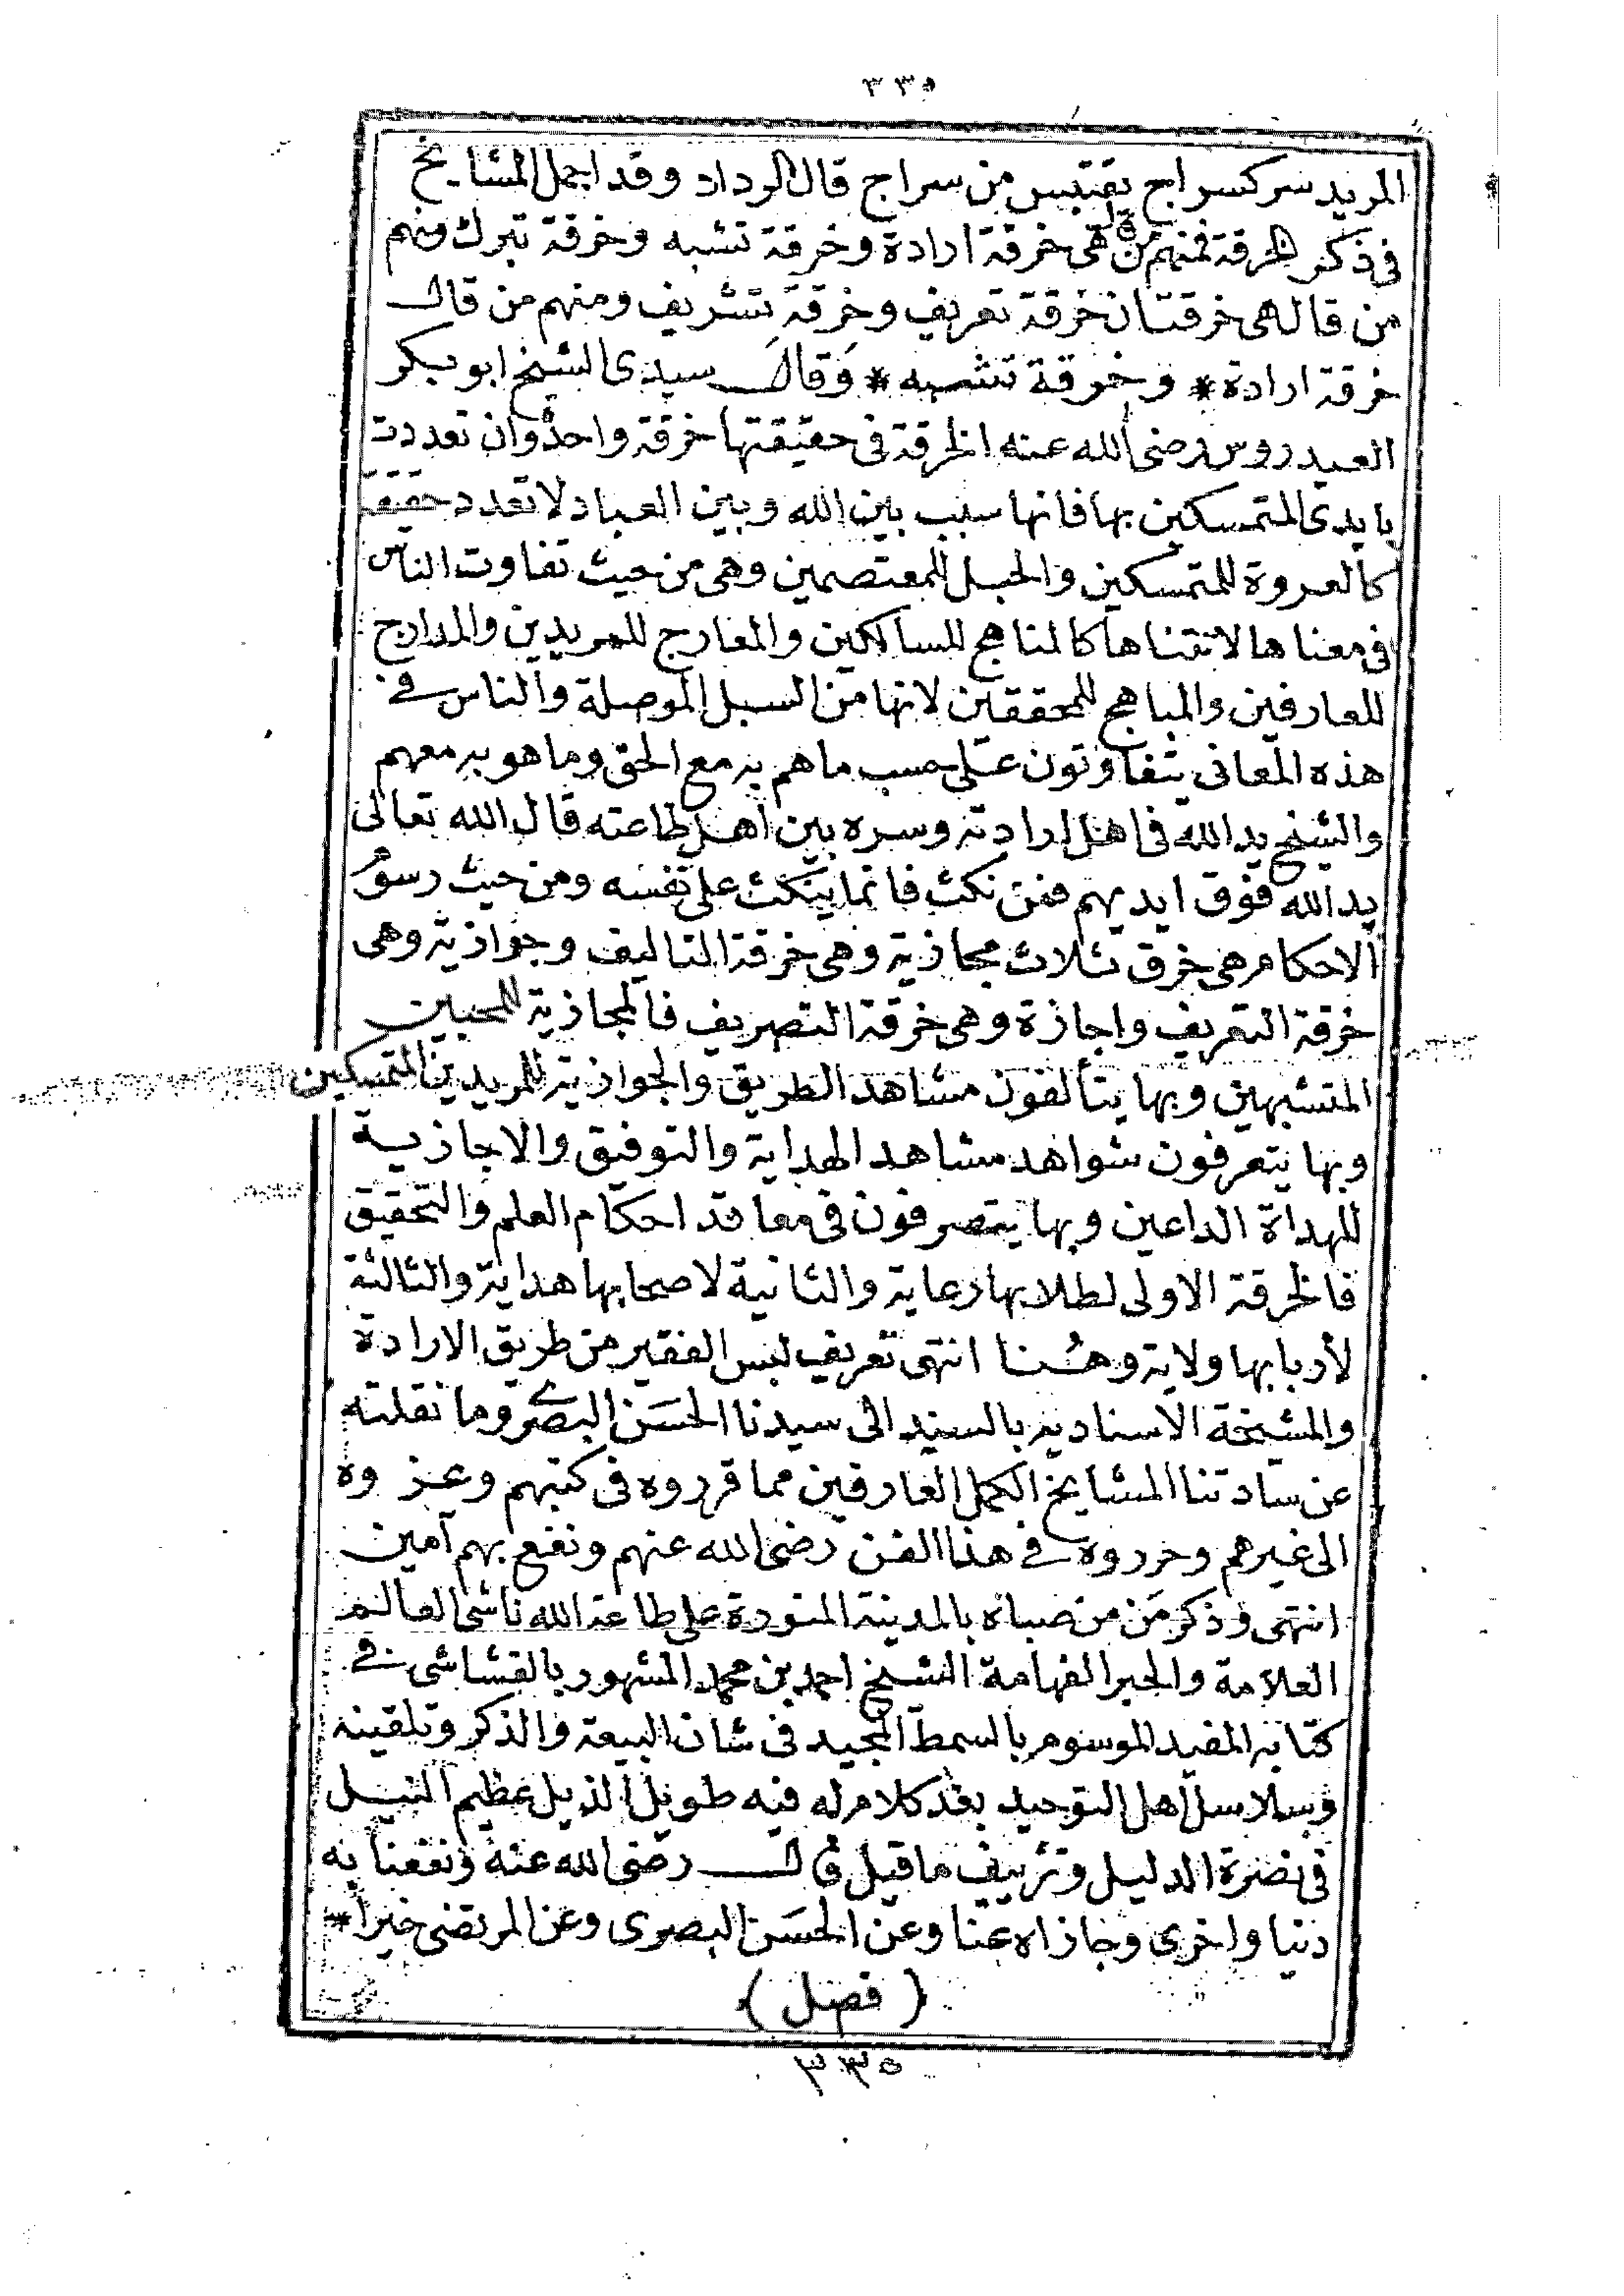 ٣٣٥
المريد سر كسراج يقتبس من سراج قال الرداد وقد اجمل المشايخ
فى ذكر الخرقة فمنهم من قال هى خرقة ارادة وخرقة تشبه وخرقة تبرك ومنهم
من قال هى خرقتان خرقة تعريف وخرقة تشريف ومنهم من قال
خرقة ارادة * وخرقة تشبه * وَقالَ سيدى الشيخ ابو بكر
العيدروس رضى الله عنه الخرقة فى حقيقتها خرقة واحدة وان تعددت
بايدى المتمسكين بها فانها سبب بين الله وبين العباد لا تعدد حقيقة
كالعروة للمتمسكين والحبل للمعتصمين وهى من حيث تفاوت الناس
فى معناها لا تتناها كالمناهج للسالكين والمعارج للمريدين والمدارج
للعارفين والمباهج للمحققين لانها من السبل الموصلة والناس فى
هذه المعانى يتفاوتون على حسب ما هم به مع الحق وما هو به معهم
والشيخ يد الله فى اهل ارادته وسره بين اهل طاعته قال الله تعالى
يد الله فوق ايديهم فمن نكث فانما ينكث على نفسه ومن حيث رسوم
الاحكام هى خرق ثلاث مجازية وهى خرقة التاليف وجوازية وهى
خرقة التعريف واجازة وهى خرقة التصريف فالمجازية للمحبين
المتشبهين وبها يتألفون مشاهد الطريق والجوازية للمريدين المتمسكين
وبها يتعرفون شواهد مشاهد الهداية والتوفيق والاجازية
للهداة الداعين وبها يتصرفون فى معاقد احكام العلم والتحقيق
فالخرقة الاولى لطلابها رعاية والثانية لاصحابها هداية والثالثة
لأربابها ولاية وهُنا انتهى تعريف لبس الفقير من طريق الارادة
والمشيخة الاسنادية بالسند الى سيدنا الحسَن البصرى وما نقلته
عن سادتنا المشايخ الكمل العارفين مما قرروه فى كتبهم وعزوه
الى غيرهم وحرروه فى هذا الفن رضى الله عنهم ونفع بهم آمين
انتهى وذكر مَن من صباه بالمدينة المنورة على طاعة الله ناشى العالم
العلامة والحبر الفهامة الشيخ احمد بن محمد المشهور بالقشاشى فى
كتابه المفيد الموسوم بالسمط المجيد فى شان البيعة والذكر وتلقينه
وسلاسل اهل التوحيد بعد كلام له فيه طويل الذيل عظيم النيل
فى نصرة الدليل وتزييف ما قيل قال رضى الله عنه ونفعنا به
دنيا واخرى وجازاه عنا وعن الحسَن البصرى وعن المرتضى خيراً *
(فصل)
٣٣٥